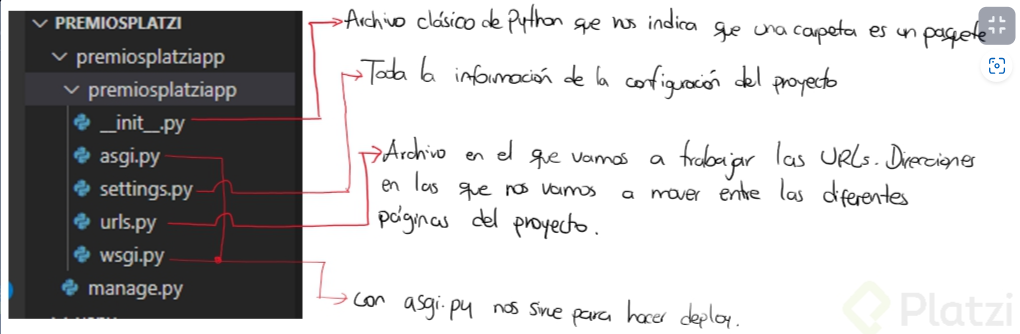 PREMIOSPLATZI
premiosplatziapp
premiosplatziapp
__init__.py
asgi.py
settings.py
urls.py
wsgi.py
manage.py
Archivo clásico de Python que nos indica que una carpeta es un paquete
Toda la información de la configuración del proyecto
Archivo en el que vamos a trabajar las URLs. Direciones
en las que nos vamos a mover entre las diferentes
páginas del proyecto.
con asgi.py nos sirve para hacer deploy.
Platzi